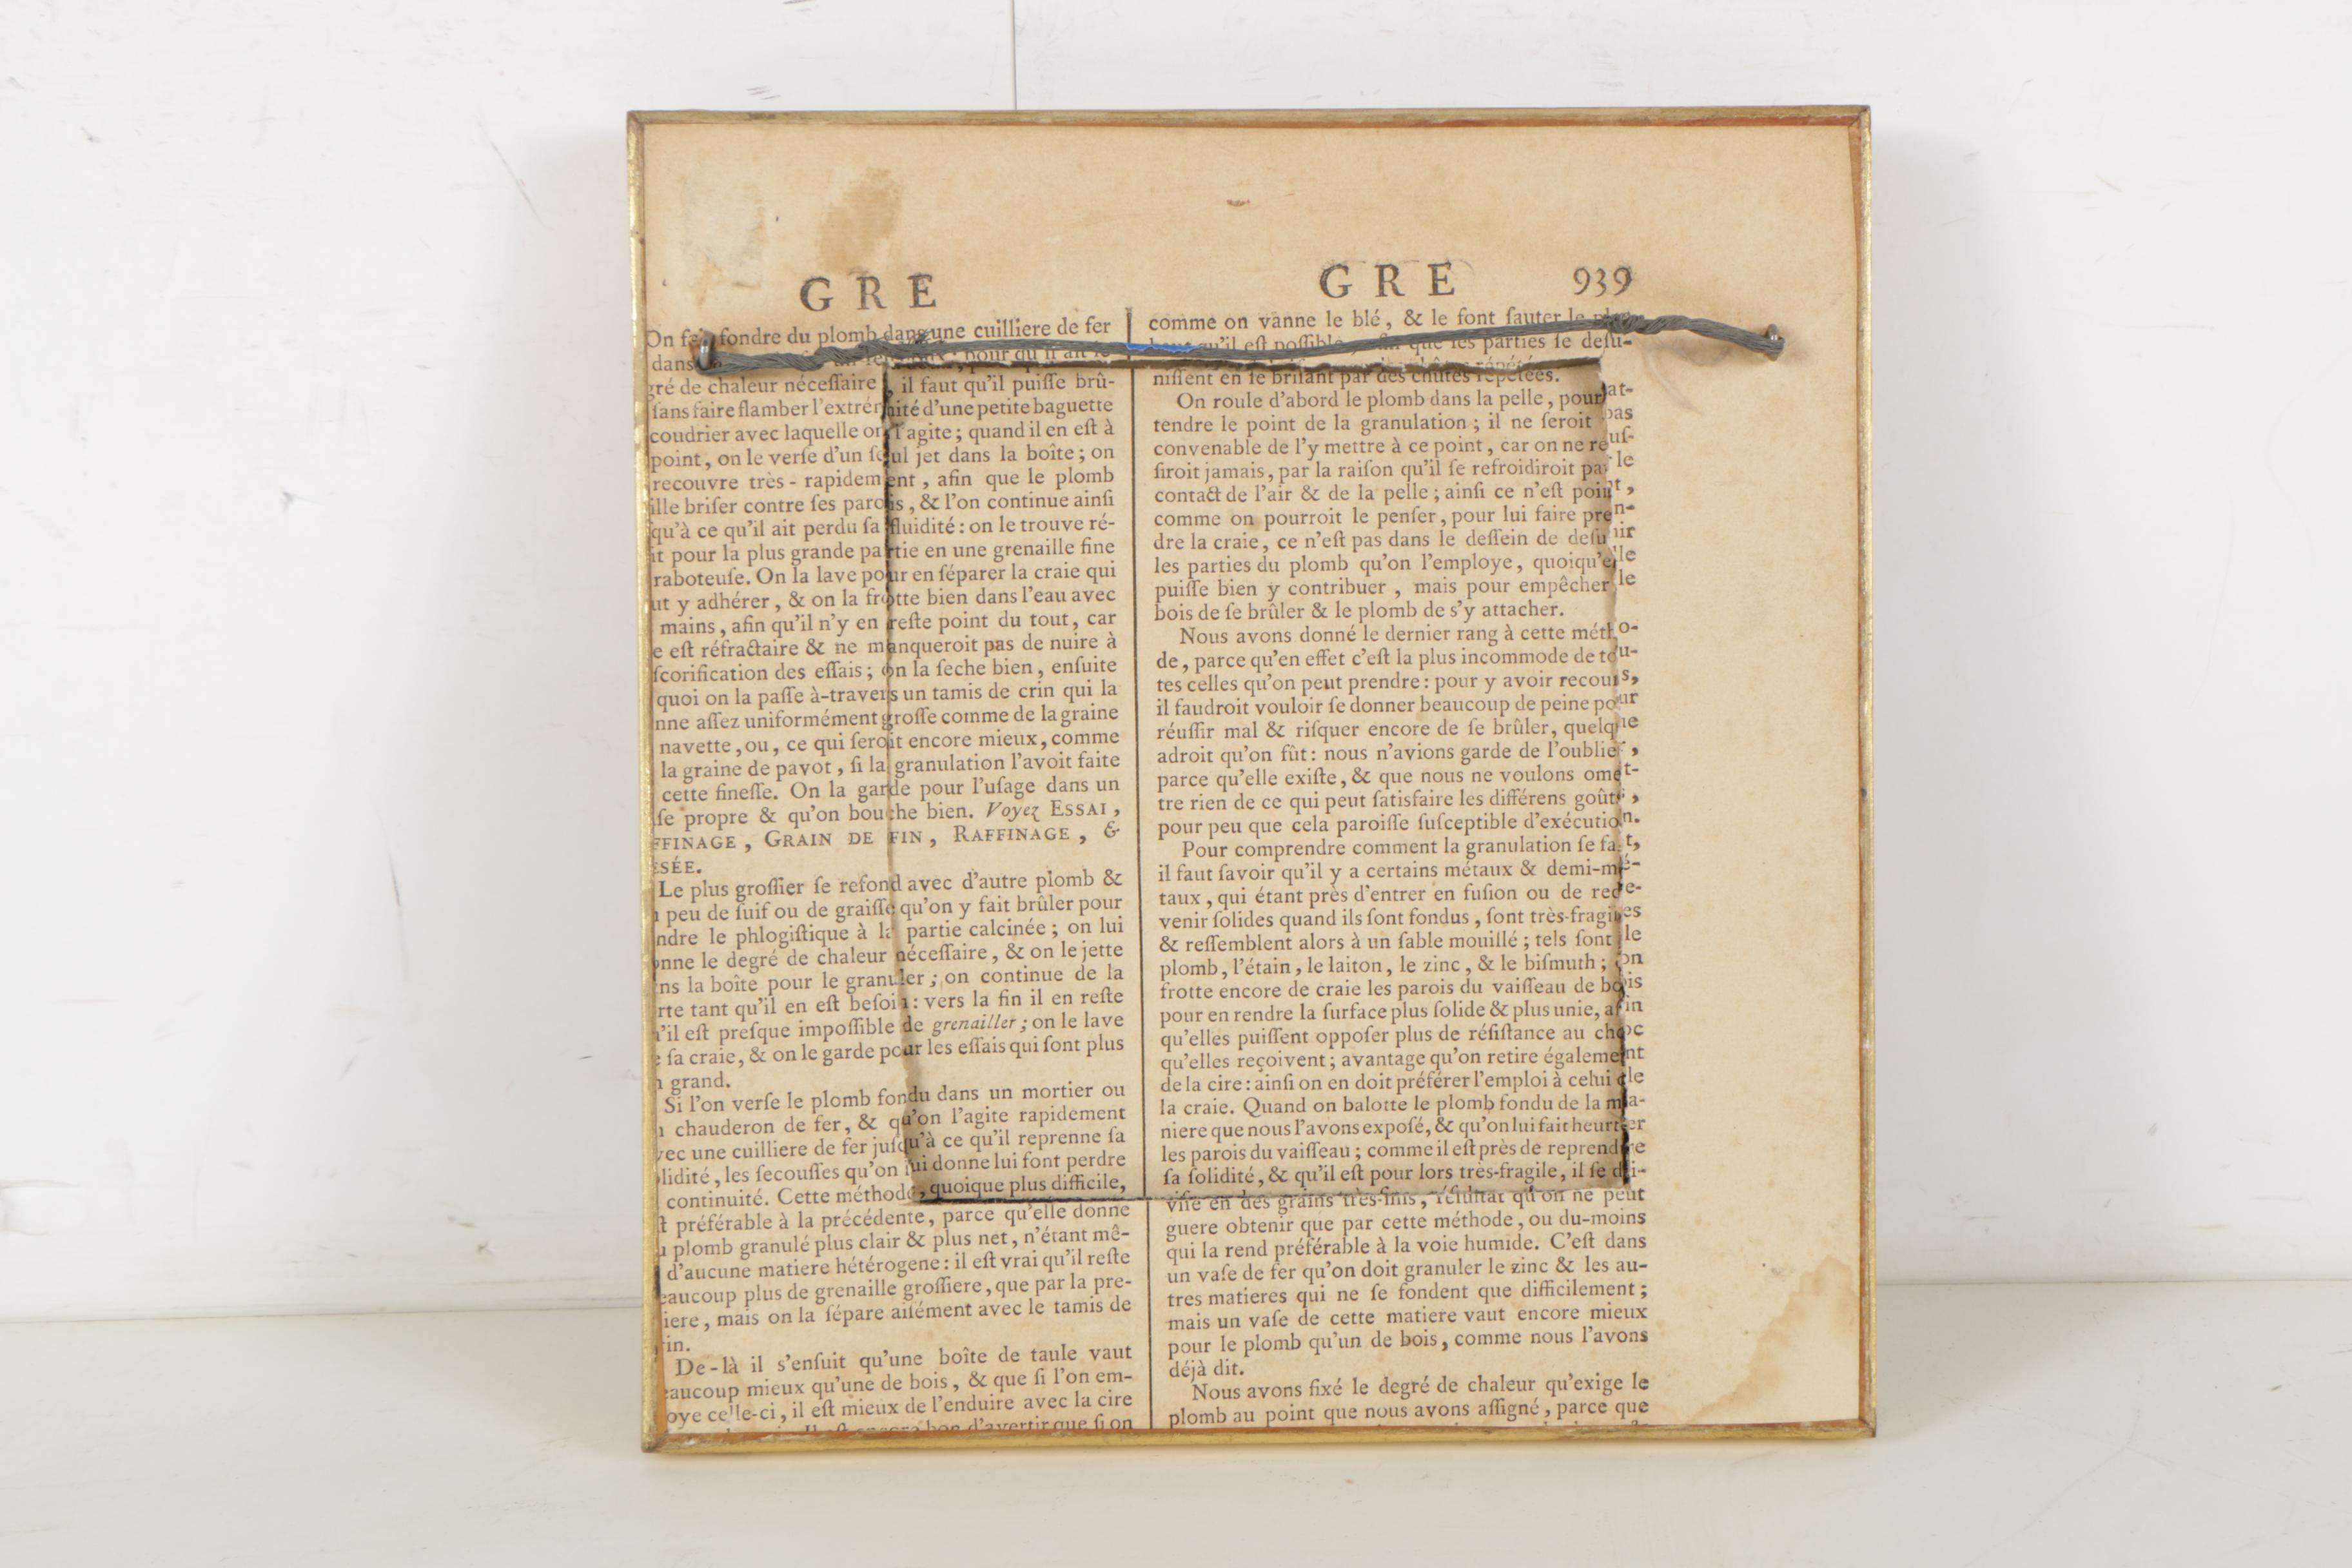 GRE
On fait fondre du plomb dans une cuilliere de fer
dans
gré de chaleur nécessaire, il faut qu'il puisse brû-
sans faire flamber l'extrémité d'une petite baguette
coudrier avec laquelle on l'agite; quand il en est à
point, on le verse d'un seul jet dans la boîte; on
recouvre très-rapidement, afin que le plomb
ille briser contre ses parois, & l'on continue ainsi
qu'à ce qu'il ait perdu sa fluidité: on le trouve ré-
it pour la plus grande partie en une grenaille fine
raboteuse. On la lave pour en séparer la craie qui
ut y adhérer, & on la frotte bien dans l'eau avec
mains, afin qu'il n'y en reste point du tout, car
e est réfractaire & ne manqueroit pas de nuire à
scorification des essais; on la seche bien, ensuite
quoi on la passe à-travers un tamis de crin qui la
nne assez uniformément grosse comme de la graine
navette, ou, ce qui seroit encore mieux, comme
la graine de pavot, si la granulation l'avoit faite
cette finesse. On la garde pour l'usage dans un
se propre & qu'on bouche bien. Voyez ESSAI,
FFINAGE, GRAIN DE FIN, RAFFINAGE, &
SÉE.
Le plus grossier se refond avec d'autre plomb &
peu de suif ou de graisse qu'on y fait brûler pour
ndre le phlogistique à la partie calcinée; on lui
onne le degré de chaleur nécessaire, & on le jette
ns la boîte pour le granuler; on continue de la
rte tant qu'il en est besoin: vers la fin il en reste
u'il est presque impossible de grenailler; on le lave
sa craie, & on le garde pour les essais qui sont plus
grand.
Si l'on verse le plomb fondu dans un mortier ou
chauderon de fer, & qu'on l'agite rapidement
vec une cuilliere de fer jusqu'à ce qu'il reprenne sa
lidité, les secousses qu'on lui donne lui font perdre
continuité. Cette méthode, quoique plus difficile,
t préférable à la précédente, parce qu'elle donne
plomb granulé plus clair & plus net, n'étant mê-
d'aucune matiere hétérogene: il est vrai qu'il reste
eaucoup plus de grenaille grossiere, que par la pre-
iere, mais on la sépare aisément avec le tamis de
in.
De-là il s'ensuit qu'une boîte de taule vaut
eaucoup mieux qu'une de bois, & que si l'on em-
oye celle-ci, il est mieux de l'enduire avec la cire
bon d'avertir que si on
GRE 939
comme on vanne le blé, & le font sauter le plus
haut qu'il est possible, afin que les parties se desu-
nissent en se brisant par des chûtes répétées.
On roule d'abord le plomb dans la pelle, pour at-
tendre le point de la granulation; il ne seroit pas
convenable de l'y mettre à ce point, car on ne réus-
siroit jamais, par la raison qu'il se refroidiroit par le
contact de l'air & de la pelle; ainsi ce n'est point,
comme on pourroit le penser, pour lui faire pren-
dre la craie, ce n'est pas dans le dessein de desunir
les parties du plomb qu'on l'employe, quoiqu'elle
puisse bien y contribuer, mais pour empêcher le
bois de se brûler & le plomb de s'y attacher.
Nous avons donné le dernier rang à cette métho-
de, parce qu'en effet c'est la plus incommode de tou-
tes celles qu'on peut prendre: pour y avoir recours,
il faudroit vouloir se donner beaucoup de peine pour
réussir mal & risquer encore de se brûler, quelque
adroit qu'on fût: nous n'avions garde de l'oublier,
parce qu'elle existe, & que nous ne voulons omet-
tre rien de ce qui peut satisfaire les différens goûts,
pour peu que cela paroisse susceptible d'exécution.
Pour comprendre comment la granulation se fait,
il faut savoir qu'il y a certains métaux & demi-mé-
taux, qui étant près d'entrer en fusion ou de rede-
venir solides quand ils sont fondus, sont très-fragiles
& ressemblent alors à un sable mouillé; tels sont le
plomb, l'étain, le laiton, le zinc, & le bismuth; on
frotte encore de craie les parois du vaisseau de bois
pour en rendre la surface plus solide & plus unie, afin
qu'elles puissent opposer plus de résistance au choc
qu'elles reçoivent; avantage qu'on retire également
de la cire: ainsi on en doit préférer l'emploi à celui de
la craie. Quand on balotte le plomb fondu de la ma-
niere que nous l'avons exposé, & qu'on lui fait heurter
les parois du vaisseau; comme il est près de reprendre
sa solidité, & qu'il est pour lors très-fragile, il se di-
vise en des grains très-fins, résultat qu'on ne peut
guere obtenir que par cette méthode, ou du-moins
qui la rend préférable à la voie humide. C'est dans
un vase de fer qu'on doit granuler le zinc & les au-
tres matieres qui ne se fondent que difficilement;
mais un vase de cette matiere vaut encore mieux
pour le plomb qu'un de bois, comme nous l'avons
déjà dit.
Nous avons fixé le degré de chaleur qu'exige le
plomb au point que nous avons assigné, parce que